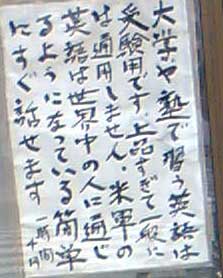 大学や塾で習う英語は
受験用です。上品すぎて一般に
は通用しません。米軍の
英語は世界中の人に通じ
るようになっている簡単
にすぐ話せます
一時間
千円